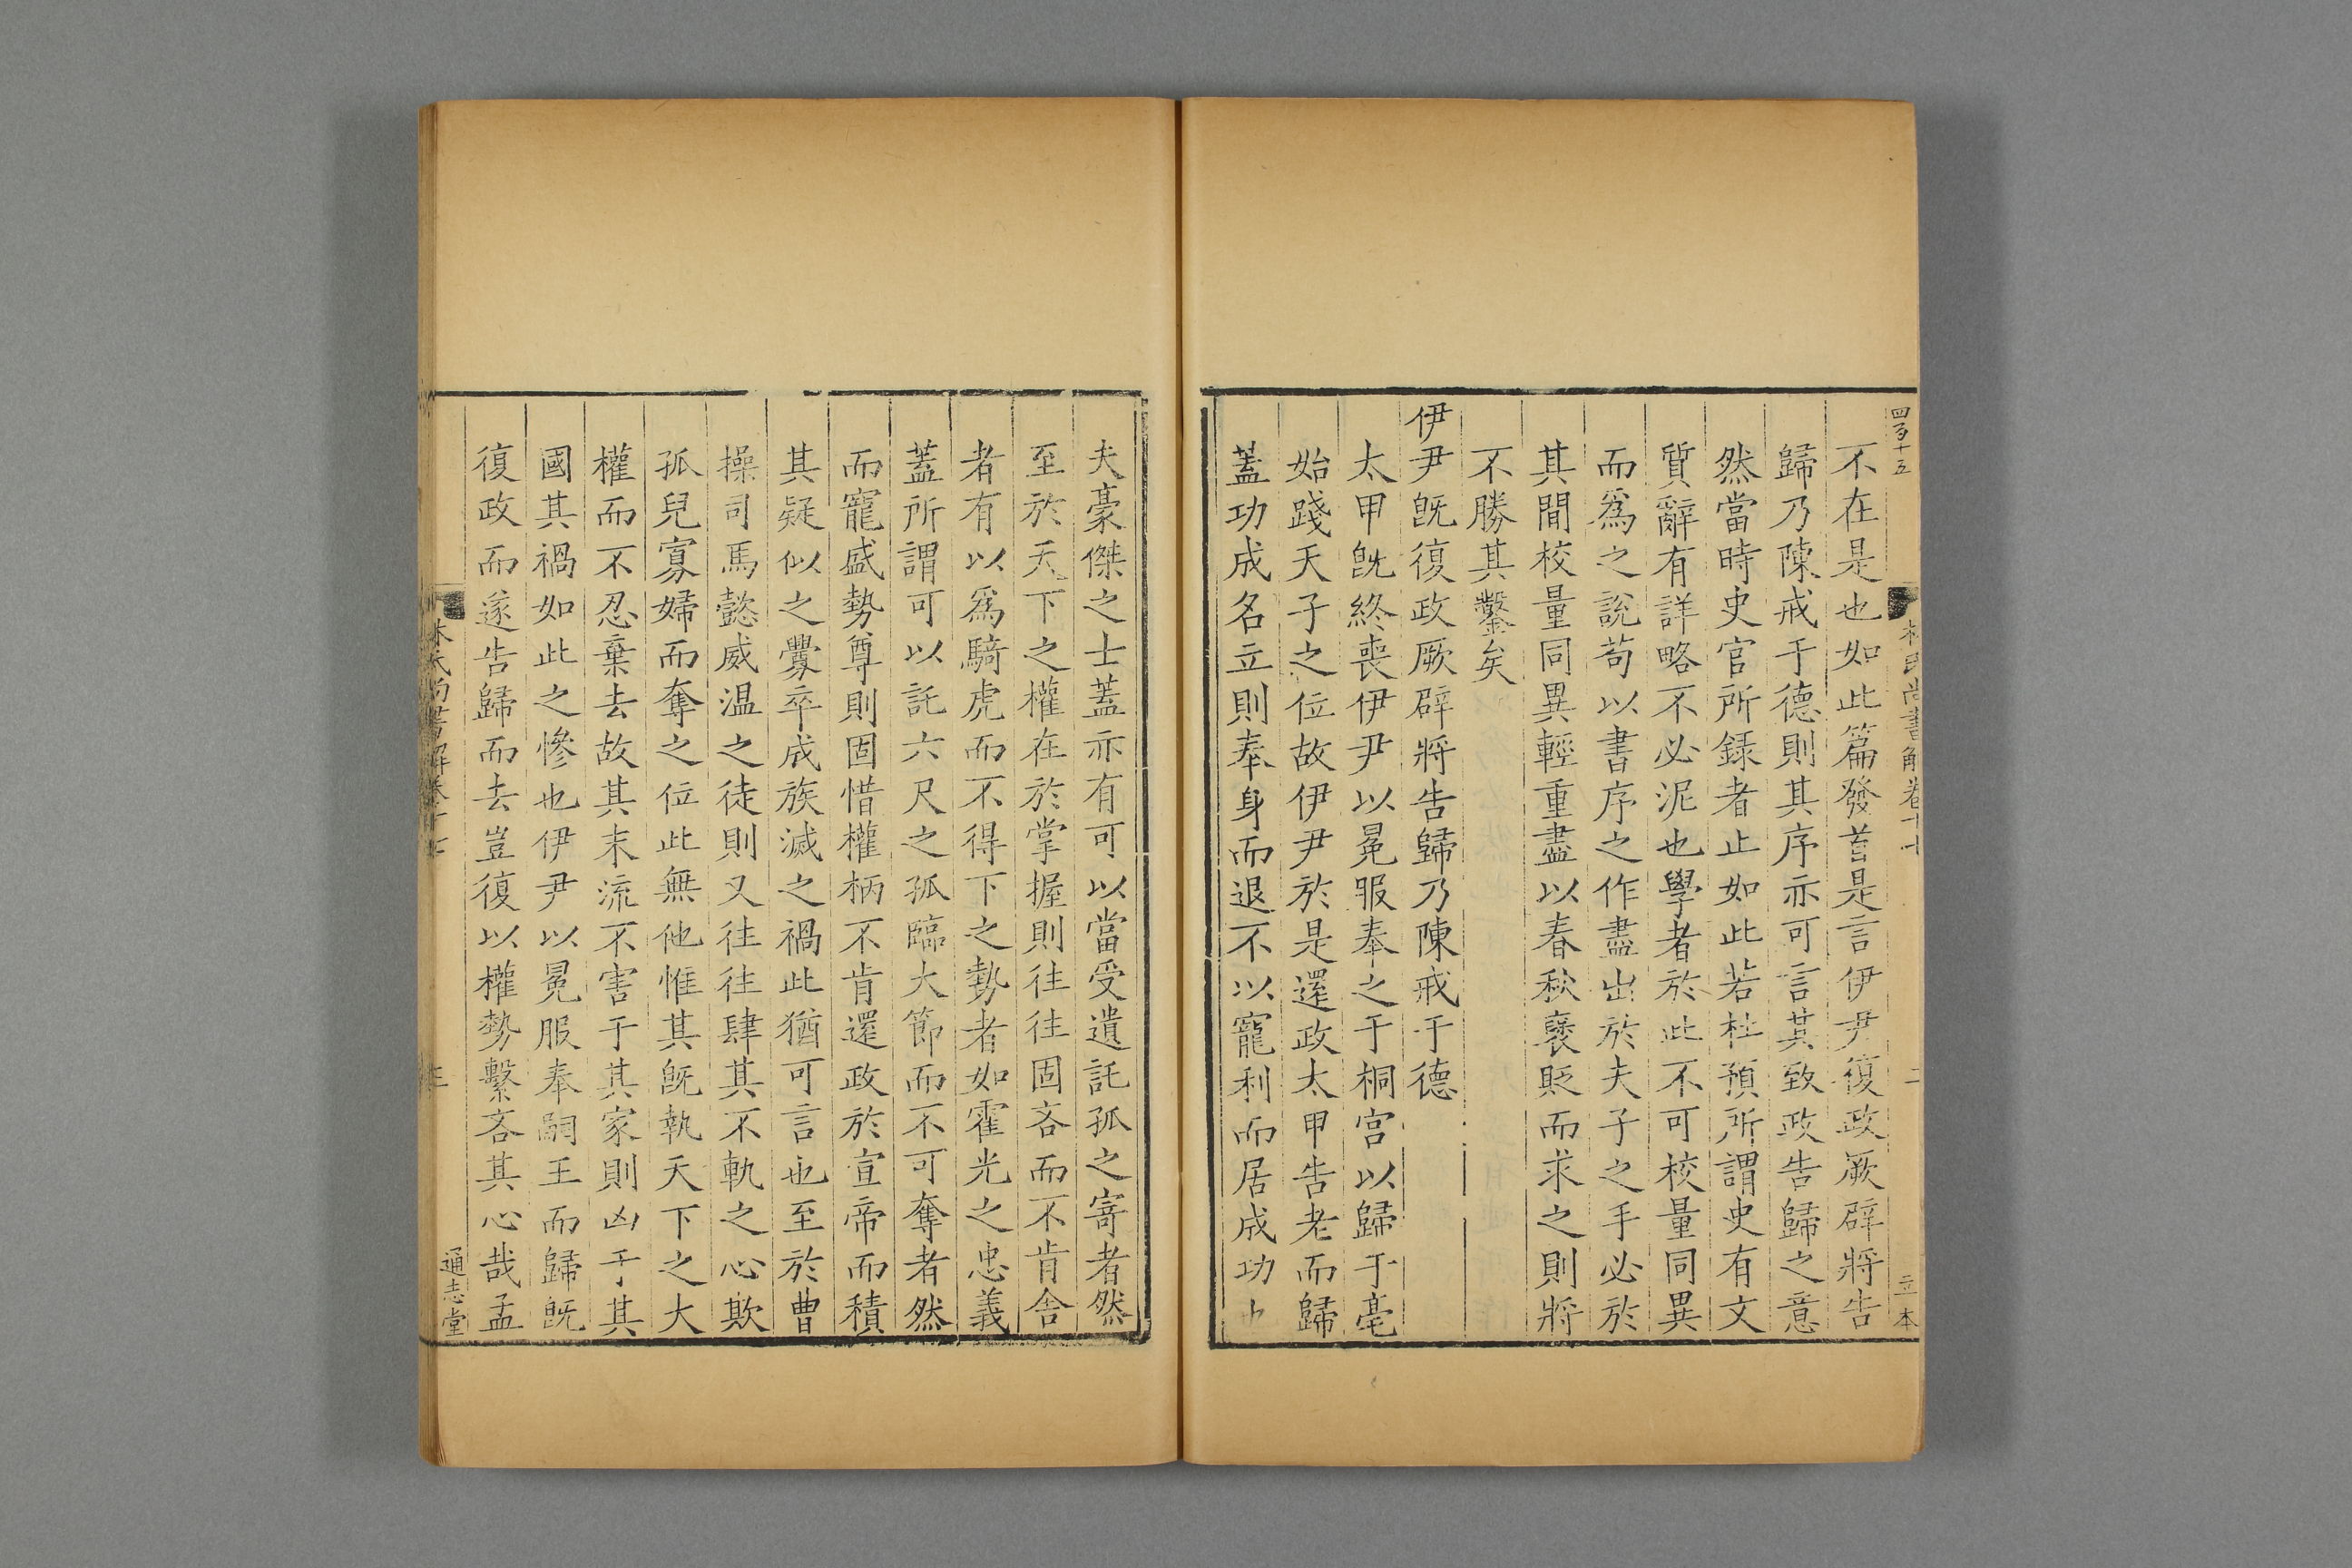 四百十五
林氏尚書解卷十七
二
立本
不在是也如此篇發首是言伊尹復政厥辟將告
歸乃陳戒于德則其序亦可言其致政告歸之意
然當時史官所録者止如此若杜預所謂史有文
質辭有詳略不必泥也學者於此不可校量同異
而爲之說苟以書序之作盡出於夫子之手必於
其間校量同異輕重盡以春秋襃貶而求之則將
不勝其鑿矣
伊尹旣復政厥辟將告歸乃陳戒于德
太甲旣終喪伊尹以冕服奉之于桐宫以歸于亳
始踐天子之位故伊尹於是還政太甲告老而歸
蓋功成名立則奉身而退不以寵利而居成功
夫豪傑之士蓋亦有可以當受遺託孤之寄者然
至於天下之權在於掌握則往往固吝而不肯舍
者有以爲騎虎而不得下之勢者如霍光之忠義
蓋所謂可以託六尺之孤臨大節而不可奪者然
而寵盛勢尊則固惜權柄不肯還政於宣帝而積
其疑似之釁卒成族滅之禍此猶可言也至於曹
操司馬懿威温之徒則又往往肆其不軌之心欺
孤兒寡婦而奪之位此無他惟其旣執天下之大
權而不忍棄去故其末流不害于其家則凶于其
國其禍如此之慘也伊尹以冕服奉嗣王而歸旣
復政而遂告歸而去豈復以權勢繫吝其心哉孟
林氏尚書解卷十七
三
通志堂